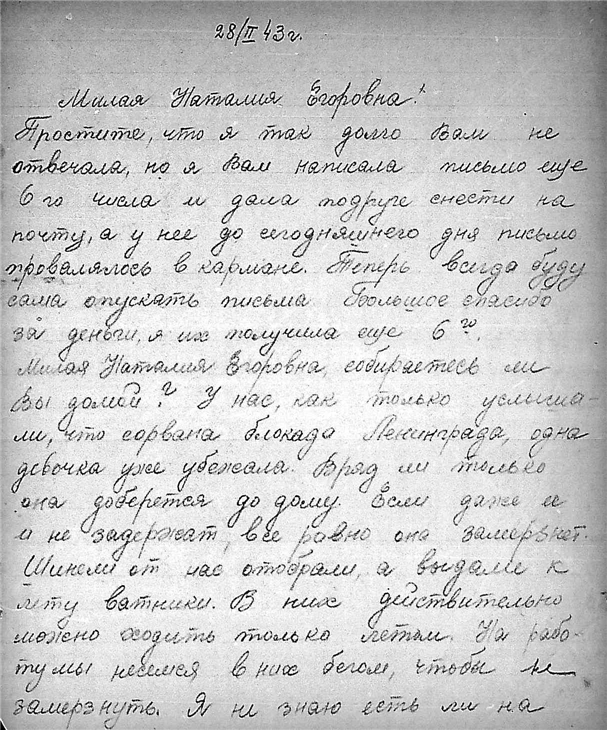 28/II 43 г.
Милая Наталия Егоровна!
Простите, что я так долго Вам не
отвечала, но я Вам написала письмо еще
6го числа и дала подруге снести на
почту, а у нее до сегодняшнего дня письмо
провалялось в кармане. Теперь всегда буду
сама опускать письма Большое спасибо
за деньги, я их получила еще 6го.
Милая Наталия Егоровна, собираетесь ли
Вы домой? У нас, как только услыша-
ли, что сорвана блокада Ленинграда, одна
девочка уже убежала. Вряд ли только
она доберется до дому. Если даже ее
и не задержат, все равно она замерзнет.
Шинели от нас отобрали, а выдали к
лету ватники. В них действительно
можно ходить только летом. На рабо-
ту мы несемся в них бегом, чтобы не
замерзнуть. Я не знаю есть ли на